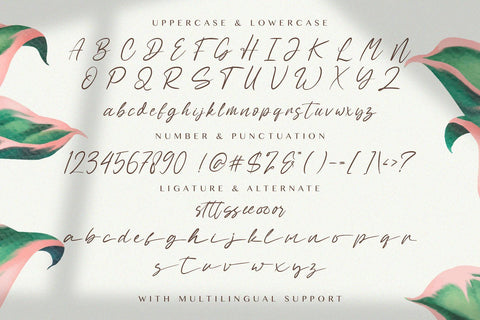 UPPERCASE & LOWERCASE
A B C D E F G H I J K L M N
O P Q R S T U V W X Y Z
abcdefghijklmnopqrstuvwxyz
NUMBER & PUNCTUATION
1234567890 !@#$%&"()--=[]\<>?
LIGATURE & ALTERNATE
a b c d e f g h i j k l m n o p q r
s t u v w x y z
WITH MULTILINGUAL SUPPORT